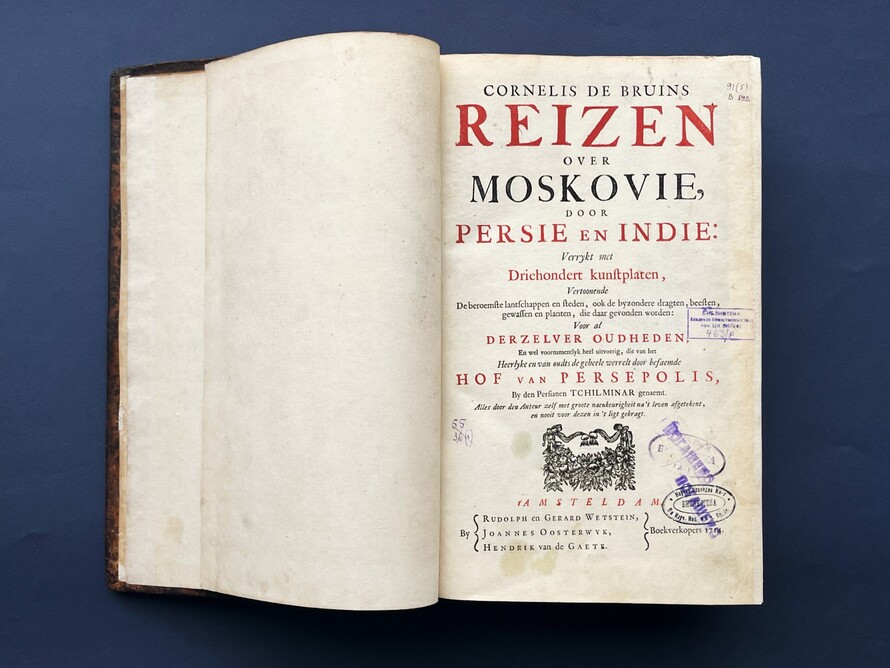 CORNELIS DE BRUINS
REIZEN
OVER
MOSKOVIE,
DOOR
PERSIE EN INDIE:
Verrykt met
Driehondert kunſtplaten,
Vertoonende
De beroemſte lantſchappen en ſteden, ook de byzondere dragten, beeſten,
gewaſſen en planten, die daar gevonden worden:
Voor al
DERZELVER OUDHEDEN,
En wel voornamentlyk heel uitvoerig, die van het
Heerlyke en van oudts de geheele werrelt door befaemde
HOF VAN PERSEPOLIS,
By den Perſianen TCHILMINAR genaemt.
Alles door den Auteur zelf met groote naeukeurigheit na't leven afgetekent,
en nooit voor dezen in 't ligt gebragt.
t'AMSTELDAM
By
RUDOLPH en GERARD WETSTEIN,
JOANNES OOSTERWYK,
HENDRIK van de GAETE.
Boekverkopers 1714.
91(5)
БИБЛИОТЕКА